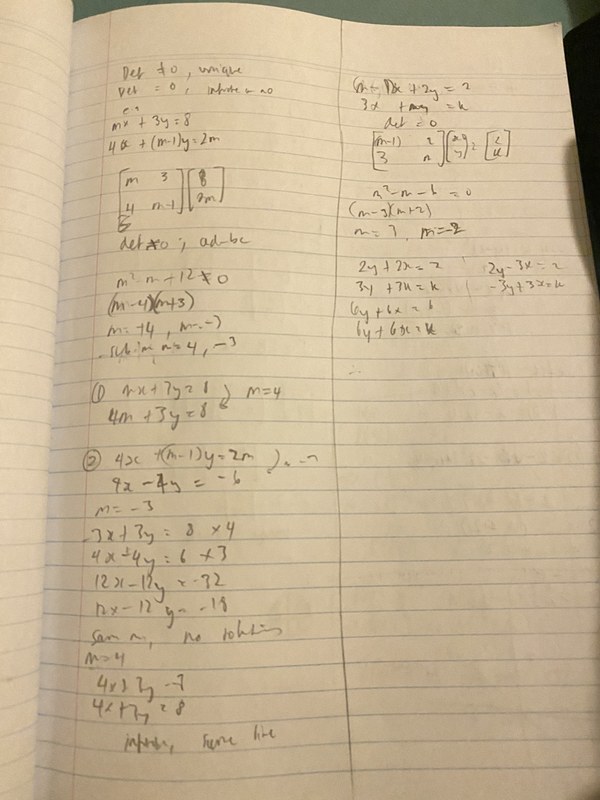 Det ≠ 0, unique
Det = 0, infinite or no
mx + 3y = 8
4x + (m-1)y = 2m
[m 3
4 m-1] [8
2m]
det ≠ 0, ad-bc
m² - m - 12 ≠ 0
(m-4)(m+3)
m = +4, m = -3
sub in m = 4, -3
① mx + 3y = 8 } m = 4
4m + 3y = 8
② 4x + (m-1)y = 2m
4x - 4y = -6
m = -3
-3x + 3y = 8 × 4
4x - 4y = 6 × 3
12x - 12y = -32
12x - 12y = -18
same m, no solutions
m = 4
4x + 3y
4x + 3y = 8
infinite, same line
(m-1)x + 2y = 2
3x + my = k
det = 0
[(m-1) 2
3 m] [x
y] = [2
k]
m² - m - 6 = 0
(m-3)(m+2)
m = 3, m = -2
2y + 2x = 2 | 2y - 3x = 2
3y + 3x = k | -3y + 3x = k
6y + 6x = 6
6y + 6x = k
∴